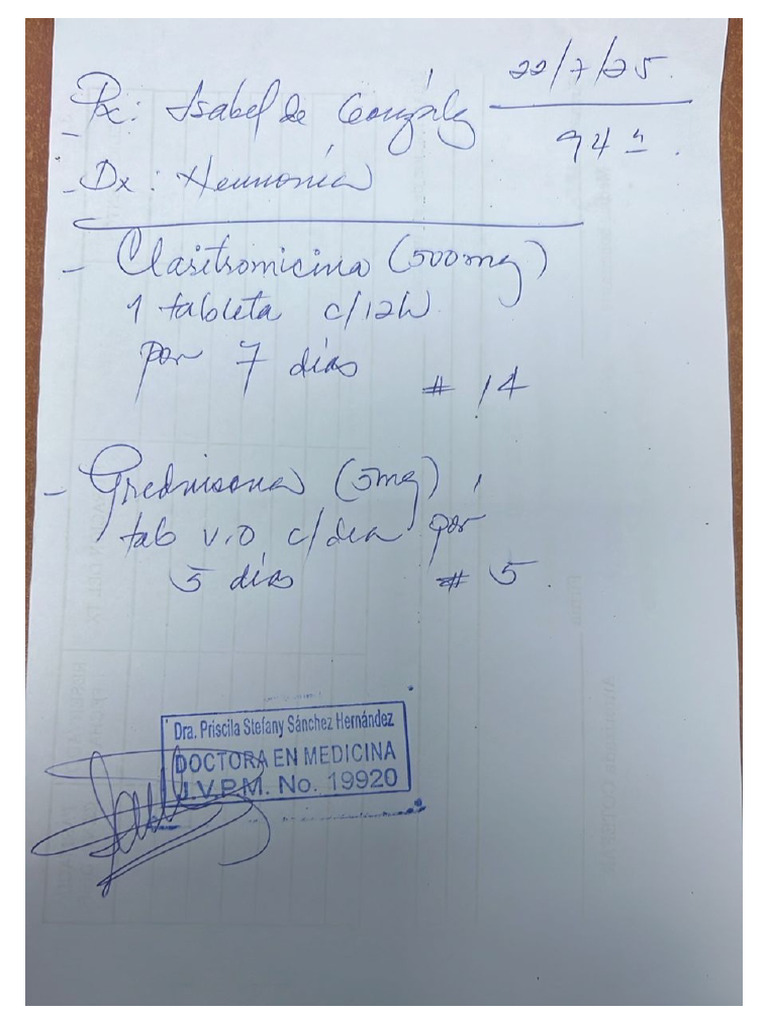 22/7/25.
Px: Isabel de González
94 a.
- Dx: Neumonía
- Claritromicina (500mg)
1 tableta c/12h
por 7 días
# 14
- Prednisona (5mg) 1
tab v.o c/dia por
5 días # 5.
Dra. Priscila Stefany Sánchez Hernández
DOCTORA EN MEDICINA
J.V.P.M. No. 19920